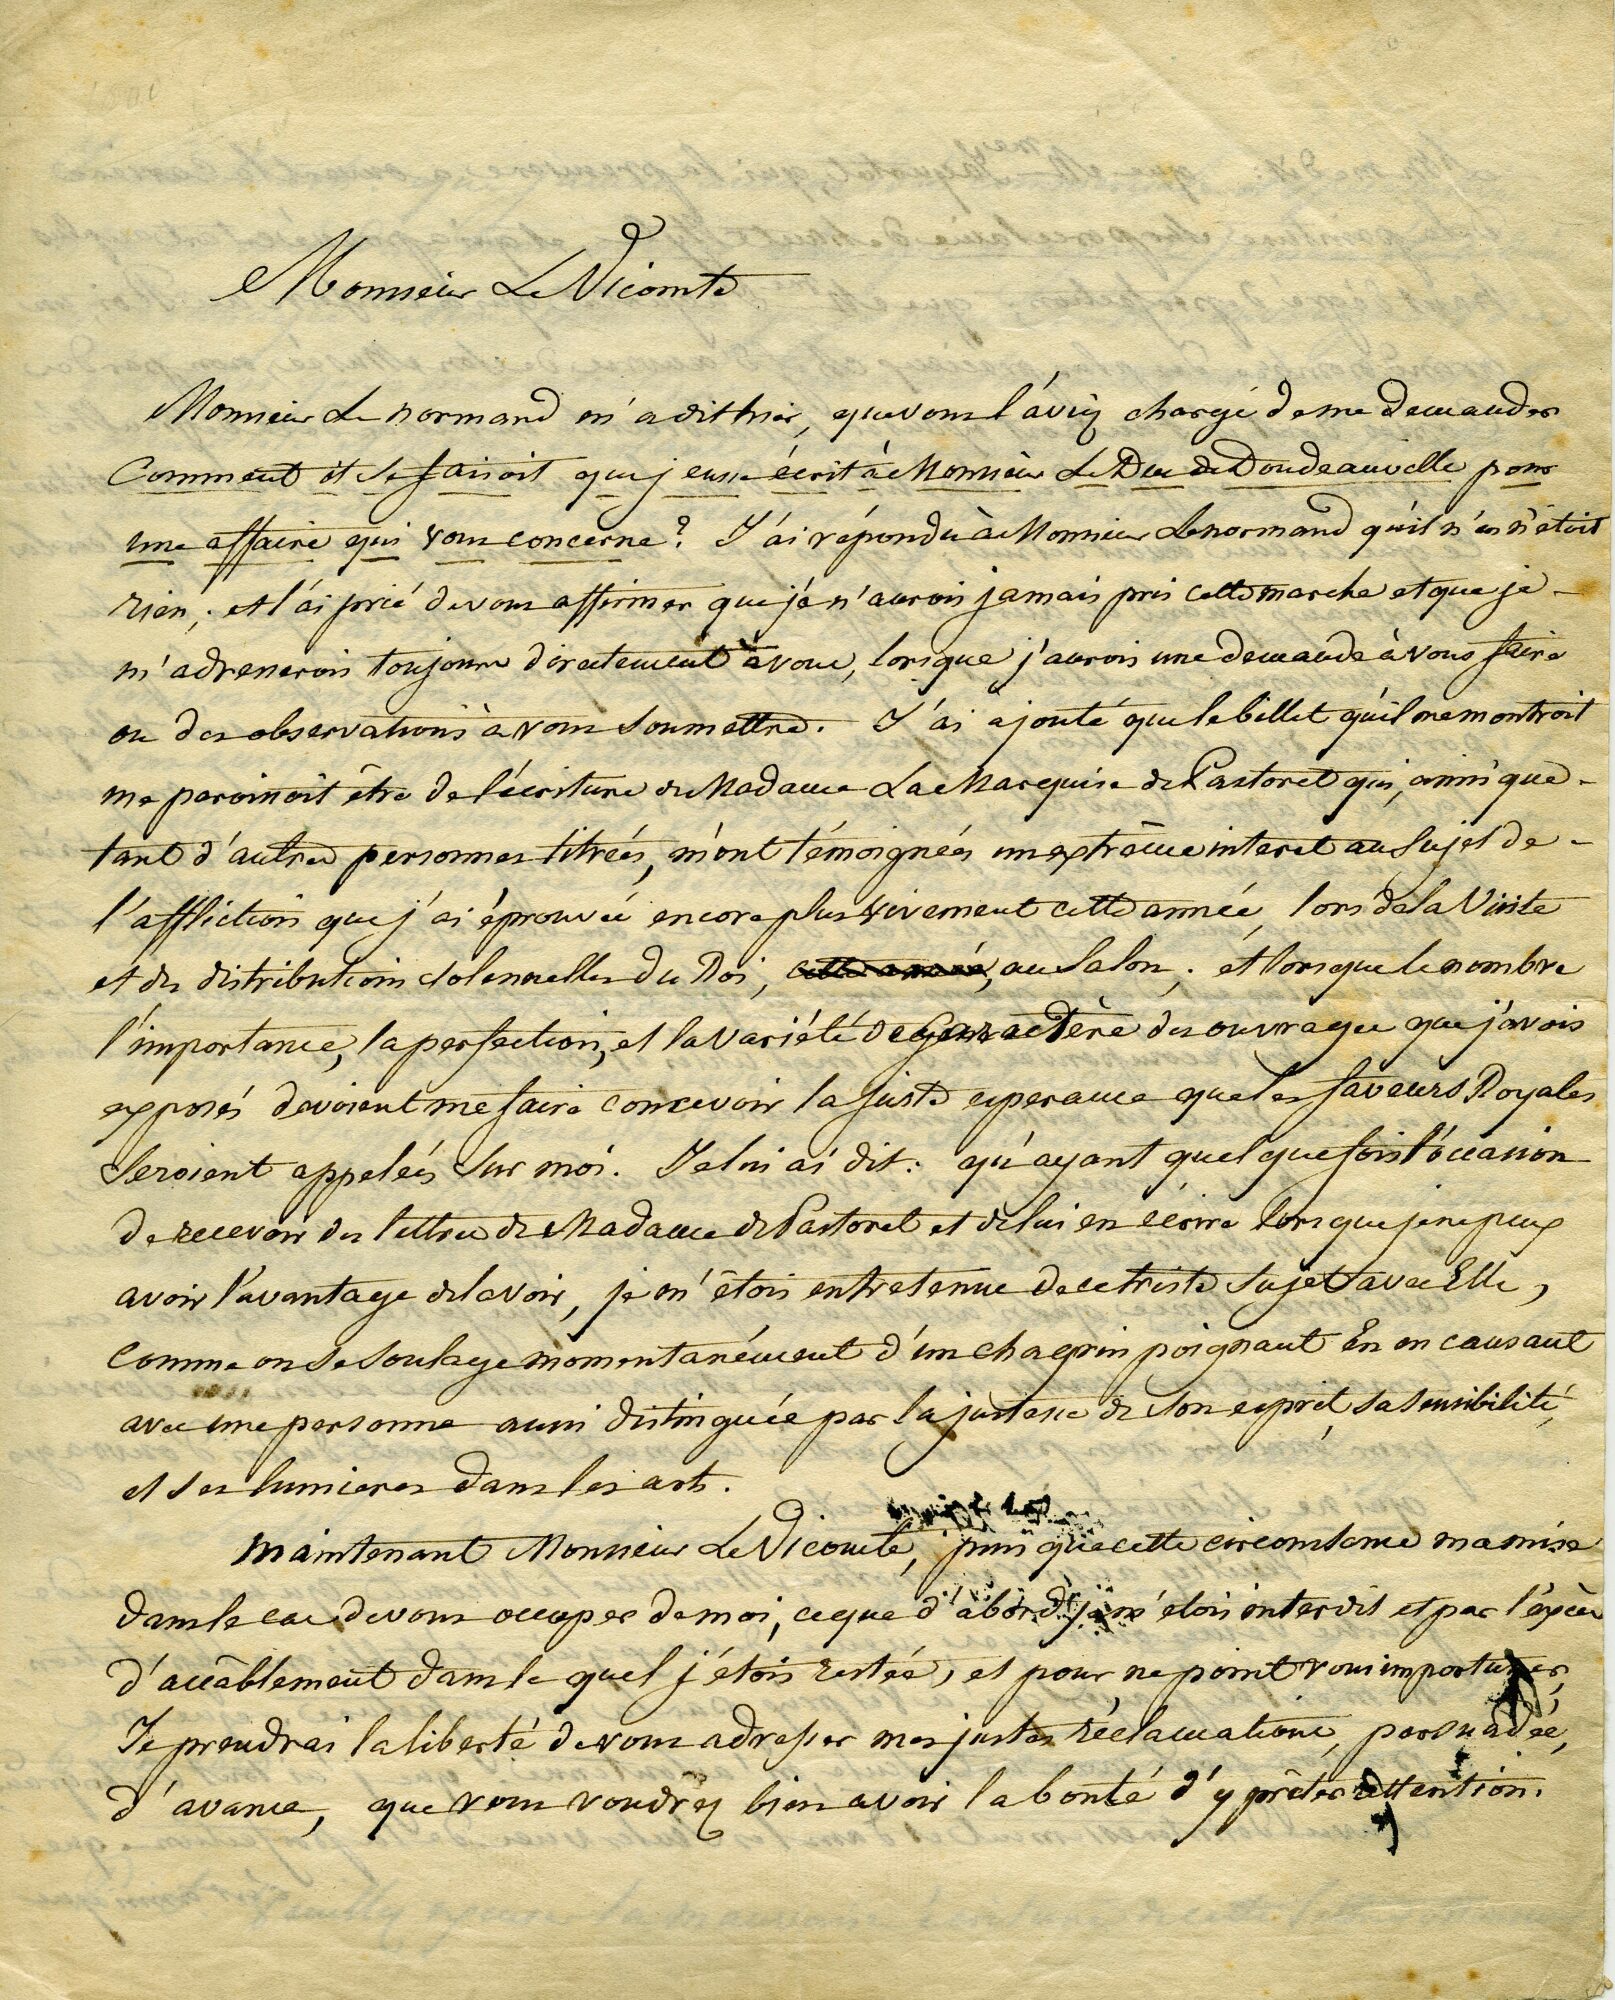 Monsieur Le Vicomte
Monsieur Le normand m'a dit hier, que vous l'aviez chargé de me demander
Comment il se faisoit que j'eusse écrit à Monsieur Le Duc de Doudeauville pour
une affaire qui vous concerne? J'ai répondu à Monsieur Lenormand qu'il n'en n'étoit
rien; et l'ai prié de vous affirmer que je n'aurois jamais pris cette marche et que je
m'adresserois toujours directement à vous, lorsque j'aurois une demande à vous faire
ou des observations à vous soumettre. J'ai ajouté que le billet qu'il me montroit
me paroissoit être de l'écriture de Madame La Marquise de Pastoret qui, ainsi que
tant d'autres personnes titrées, m'ont témoignées un extrême interet au sujet de
l'affliction que j'ai éprouvée encore plus vivement cette année, lors de la Visite
et des distributions solennelles du Roi, cette année, au Salon; et lorsque le nombre
l'importance, la perfection, et la variété de caractère des ouvrages que j'avois
exposés devoient me faire concevoir la juste esperance que les faveurs Royales
seroient appelées sur moi. Je lui ai dit: qu'ayant quelque fois l'occasion
de recevoir des lettres de Madame de Pastoret et de lui en écrire lorsque je ne peux
avoir l'avantage de la voir, je m'étois entretenue de ce triste sujet avec Elle,
comme on se soulage momentanément d'un chagrin poignant En en causant
avec une personne aussi distinguée par la justesse de son esprit, sa sensibilité,
et ses lumieres dans les arts.
Maintenant Monsieur Le Vicomte, puis que cette circonstance m'a mise
dans le cas de vous occuper de moi, ce que d'abord je m'étois interdit et par l'excès
d'accâblement dans le quel j'étois restée, et pour ne point vous importuner,
Je prendrai la liberté de vous adresser mes justes réclamations, persuadée,
d'avance, que vous voudrez bien avoir la bonté d'y prêter attention.